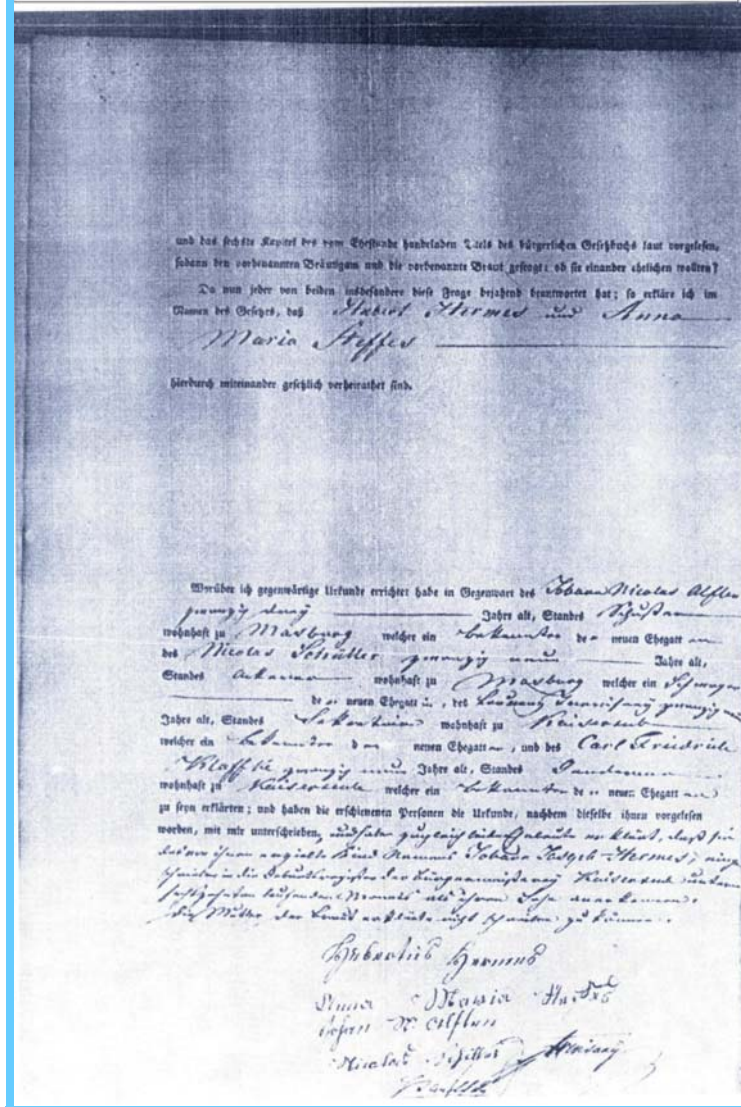 und das sechste Kapitel des vom Ehestande handelnden Titels des bürgerlichen Gesetzbuchs laut vorgelesen,
sodann den vorbenannten Bräutigam und die vorbenannte Braut gefragt: ob sie einander ehelichen wollten?
Da nun jeder von beiden insbesondere diese Frage bejahend beantwortet hat; so erkläre ich im
Namen des Gesetzes, daß Hubert Hermes und Anna
Maria Steffes
hierdurch miteinander gesetzlich verheirathet sind.
Worüber ich gegenwärtige Urkunde errichtet habe in Gegenwart des Johann Nicolas Alflen
zwanzig drey Jahre alt, Standes Schuster
wohnhaft zu Masburg welcher ein Bekannter der neuen Ehegatten
des Nicolas Schüller zwanzig neun Jahre alt,
Standes Ackerer wohnhaft zu Masburg welcher ein Schwager
der neuen Ehegattin, des zwanzig
Jahre alt, Standes Sekretair wohnhaft zu Kaisersesch
welcher ein Bekannter der neuen Ehegatten, und des Carl Friedrich
zwanzig neun Jahre alt, Standes
wohnhaft zu Kaisersesch welcher ein Bekannter der neuen Ehegatten
zu seyn erklärten; und haben die erschienenen Personen die Urkunde, nachdem dieselbe ihnen vorgelesen
worden, mit mir unterschrieben, und haben zugleich beide Eheleute erklärt, daß sie
das von ihnen erzielte Kind Namens Johann Joseph Hermes, einge
schrieben in die Geburtsregister der Bürgermeisterey Kaisersesch unterm
laufenden Monats als ihren Sohn anerkennen.
die Mutter der Braut erklärte nicht schreiben zu können.
Hubertus Hermes
Anna Maria Steffes
Johan N. Alflen
Nicolas Schüller